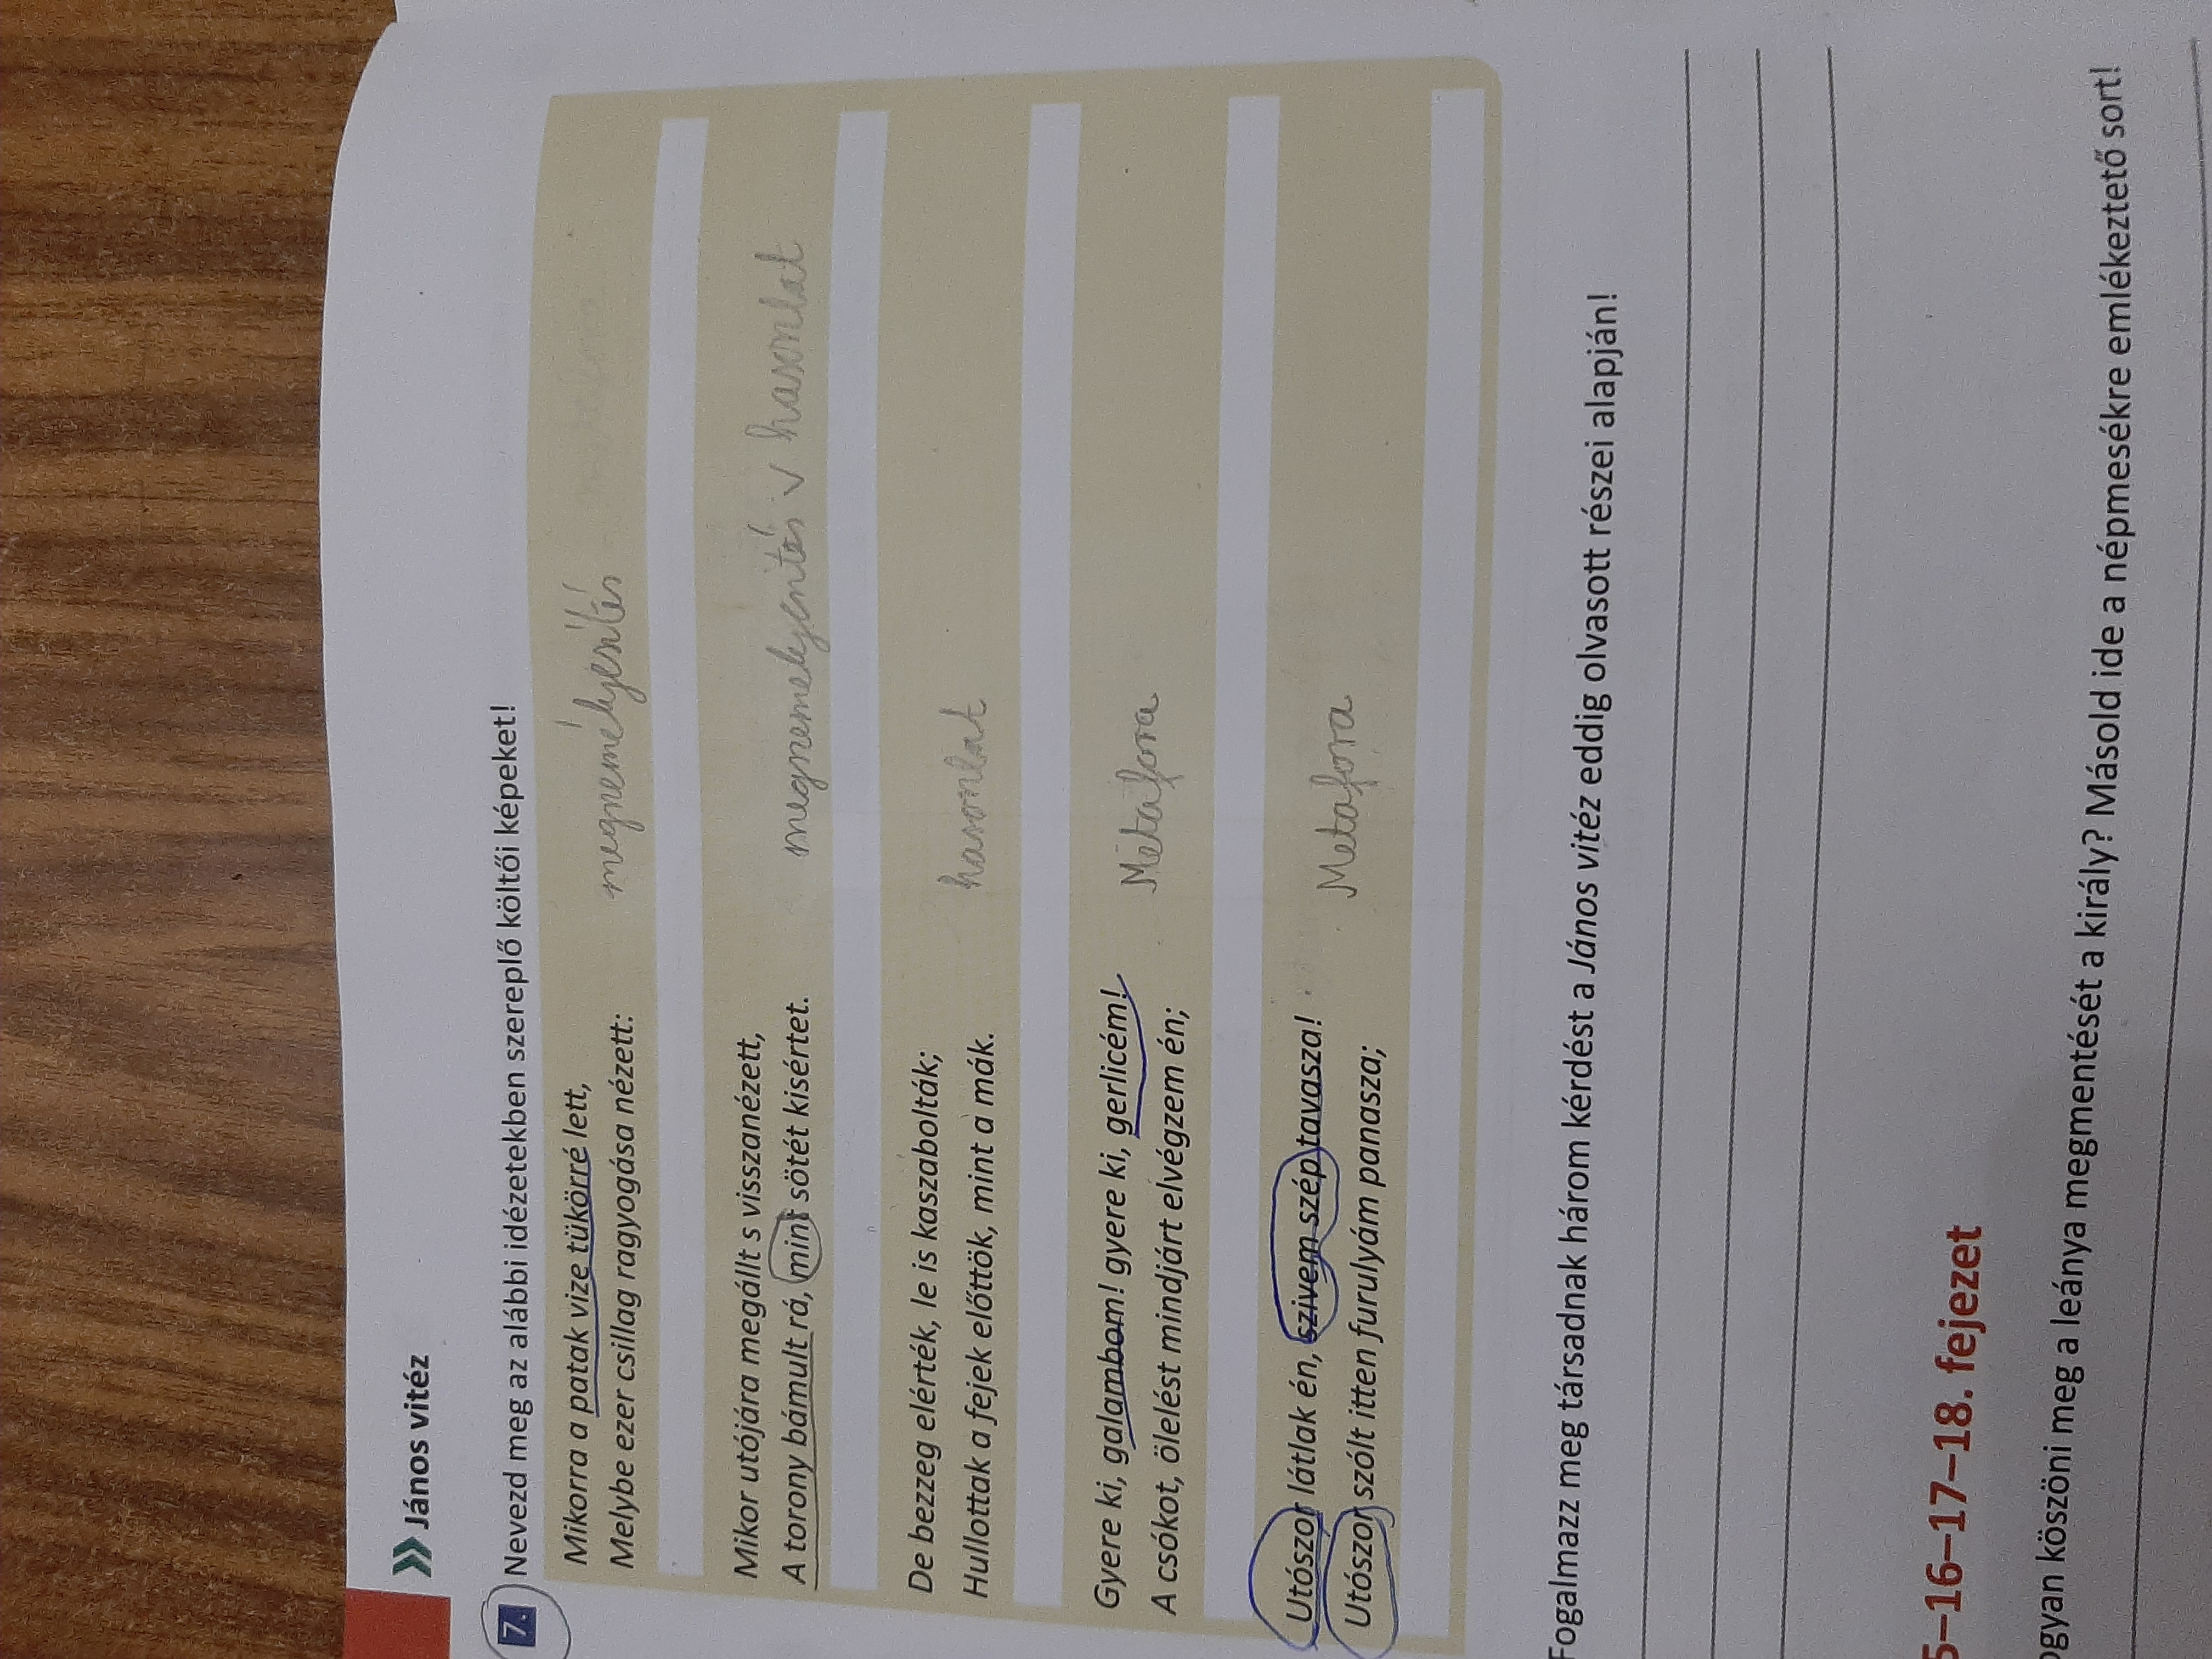 János vitéz
7. Nevezd meg az alábbi idézetekben szereplő költői képeket!
Mikorra a patak vize tükörré lett,
Melybe ezer csillag ragyogása nézett:
megnemélyesítés
Mikor utójára megállt s visszanézett,
A torony bámult rá, mint sötét kisértet.
megnemelyenítés v hasonlat
De bezzeg elérték, le is kaszabolták;
Hullottak a fejek előttök, mint a mák.
hasonlat
Gyere ki, galambom! gyere ki, gerlicém!
A csókot, ölelést mindjárt elvégzem én;
Metafora
Utószor látlak én, szivem szép tavasza!
Utószor szólt itten furulyám panasza;
Metafora
Fogalmazz meg társadnak három kérdést a János vitéz eddig olvasott részei alapján!
5–16–17–18. fejezet
ogyan köszöni meg a leánya megmentését a király? Másold ide a népmesékre emlékeztető sort!